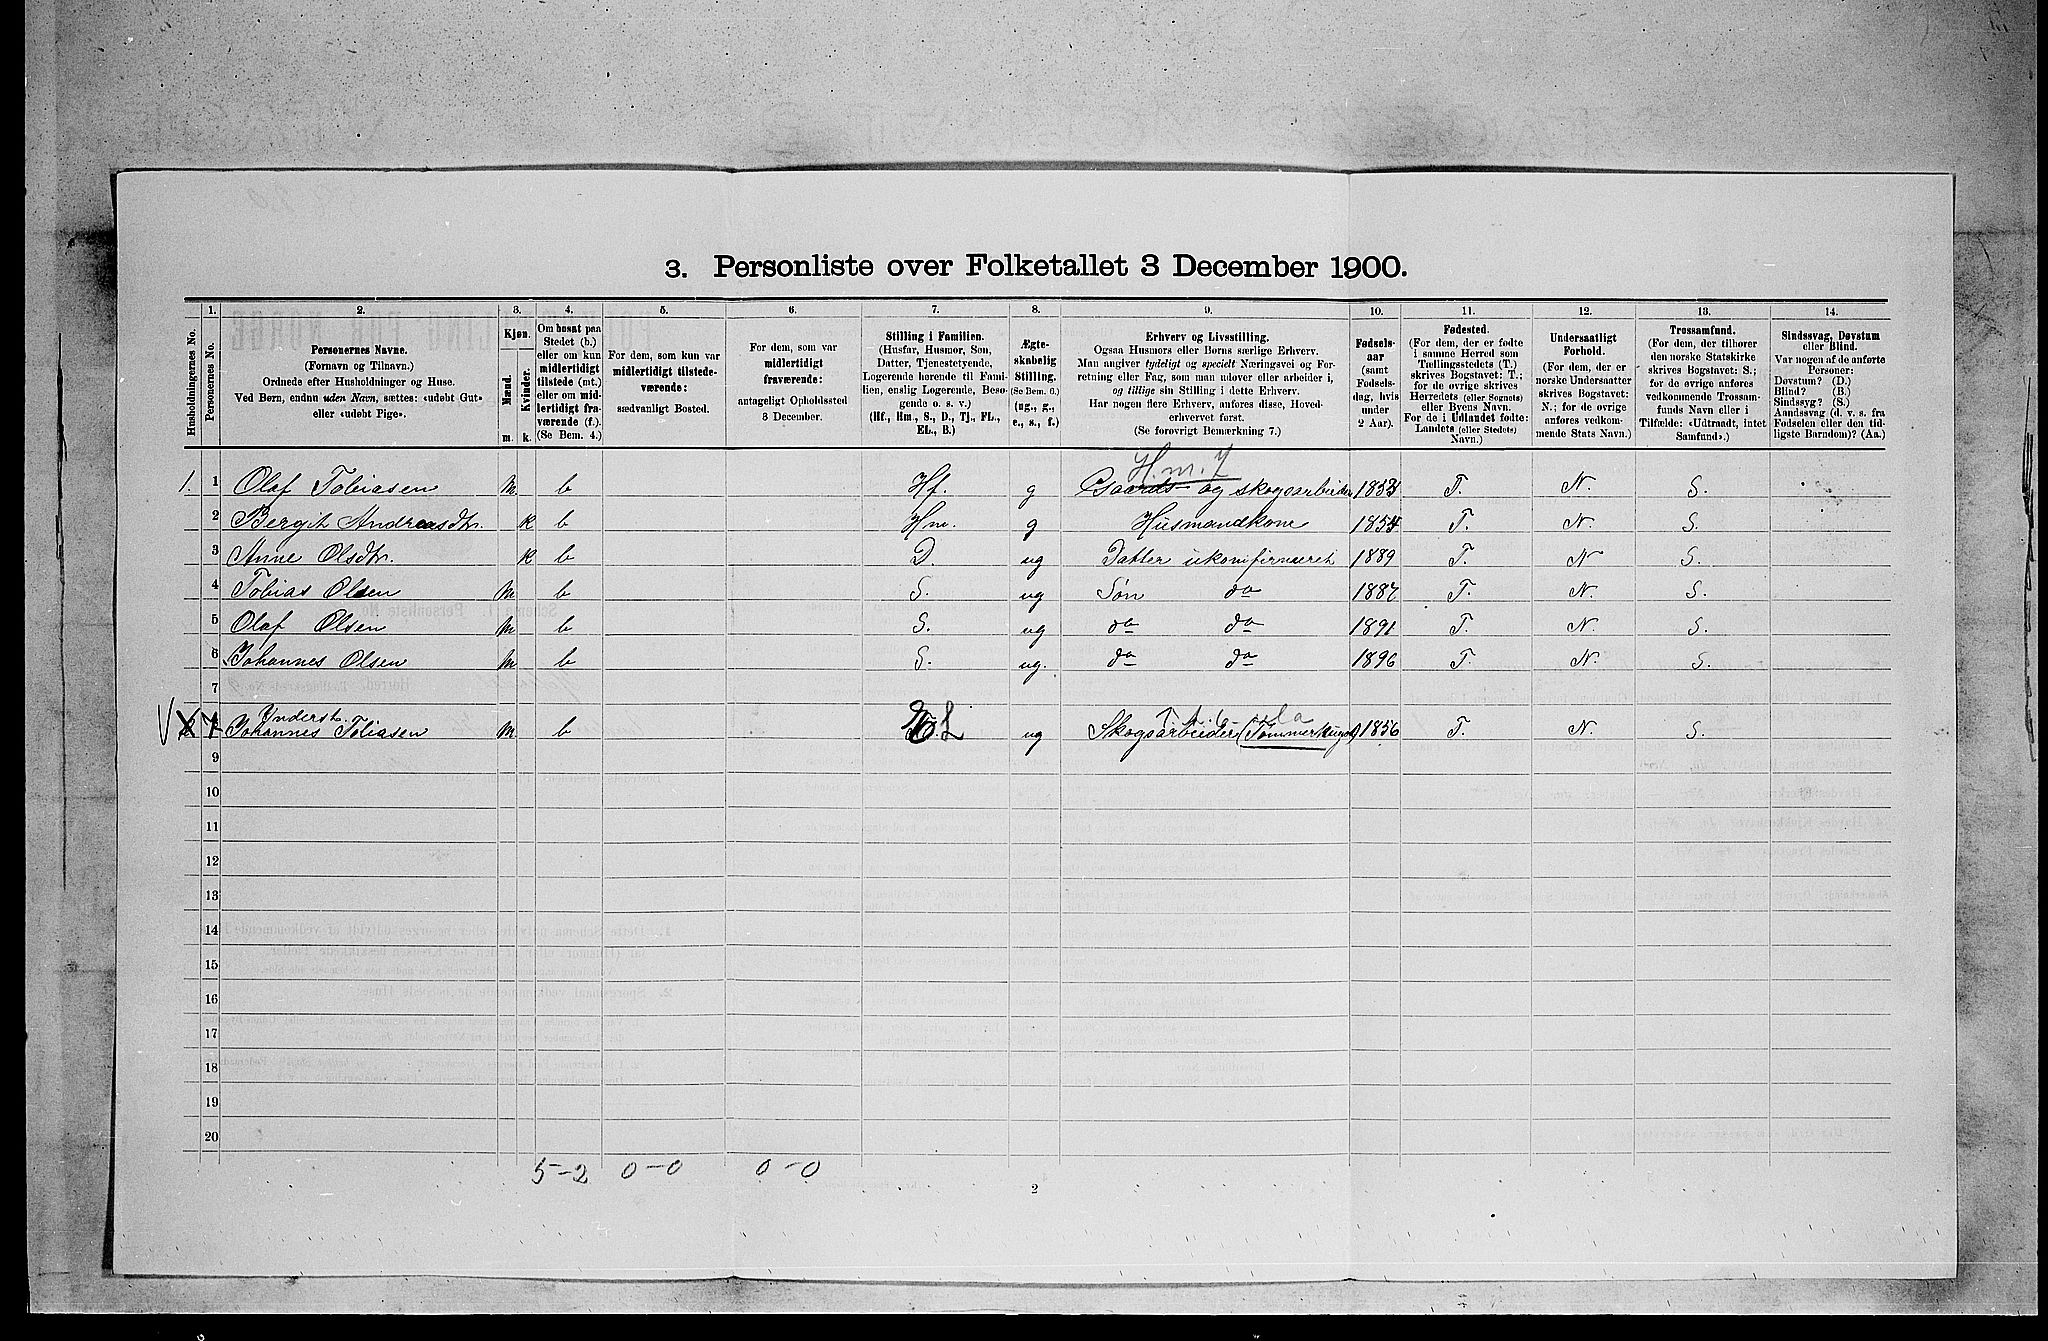 3. Personliste over Folketallet 3 December 1900.
1. 2. 3. 4. 5. 6. 7. 8. 9. 10. 11. 12. 13. 14.
Husholdningernes No.
Personernes No.
Personernes Navne.
(Fornavn og Tilnavn.)
Ordnede efter Husholdninger og Huse.
Ved Børn, endnu uden Navn, sættes: «udøbt Gut»
eller «udøbt Pige».
Kjøn.
Mænd.
Kvinder.
m. k.
Om bosat paa
Stedet (b.)
eller om kun
midlertidigt
tilstede (mt.)
eller om mid-
lertidigt fra-
værende (f.).
(Se Bem. 4.)
For dem, som kun var
midlertidigt tilstede-
værende:
sædvanligt Bosted.
For dem, som var
midlertidigt
fraværende:
antageligt Opholdssted
3 December.
Stilling i Familien.
(Husfar, Husmor, Søn,
Datter, Tjenestetyende,
Logerende hørende til Fami-
lien, enslig Logerende, Besø-
gende o. s. v.)
(Hf., Hm., S., D., Tj., FL.,
EL., B.)
Ægte-
skabelig
Stilling.
(Se Bem. 6.)
(ug., g.,
e., s., f.)
Erhverv og Livsstilling.
Ogsaa Husmors eller Børns særlige Erhverv.
Man angiver tydeligt og specielt Næringsvei og For-
retning eller Fag, som man udøver eller arbeider i,
og tillige sin Stilling i dette Erhverv.
Har nogen flere Erhverv, anføres disse, Hoved-
erhvervet først.
(Se forøvrigt Bemærkning 7.)
Fødsels-
aar
(samt
Fødsels-
dag, hvis
under
2 Aar).
Fødested.
(For dem, der er fødte
i samme Herred som
Tællingsstedets (T.)
skrives Bogstavet: T.;
for de øvrige skrives
Herredets (eller Sognets)
eller Byens Navn.
For de i Udlandet fødte:
Landets (eller Stedets)
Navn.)
Undersaatligt
Forhold.
(For dem, der er
norske Undersaatter
skrives Bogstavet:
N.; for de øvrige
anføres vedkom-
mende Stats Navn.)
Trossamfund.
(For dem, der tilhører
den norske Statskirke
skrives Bogstavet: S.;
for de øvrige anføres
vedkommende Trossam-
funds Navn eller i
Tilfælde: «Udtraadt, intet
Samfund».)
Sindssvag, Døvstum
eller Blind.
Var nogen af de anførte
Personer:
Døvstum? (D.)
Blind? (B.)
Sindssyg? (S.)
Aandssvag (d. v. s. fra
Fødselen eller den tid-
ligste Barndom)? (Aa.)
H.m.
1. 1 Olaf Tobiasen m b Hf. g Gaards- og skogsarbeider 1853 T. N. S.
2 Bergit Andreasdtr. k b Hm. g Husmandkone 1854 T. N. S.
3 Anne Olsdtr. k b D. ug Datter ukonfirmeret 1889 T. N S.
4 Tobias Olsen m b S. ug Søn do 1887 T. N. S.
5 Olaf Olsen m b S. ug do do 1891 T. N. S.
6 Johannes Olsen m b S. ug. do do 1896 T. N. S.
7
7 Johannes Tobiasen m b E.L ug Skogsarbeider (Tømmerhugst) 1856 T. N. S.
9
10
11
12
13
14
15
16
17
18
19
20
5-2 0-0 0-0
2